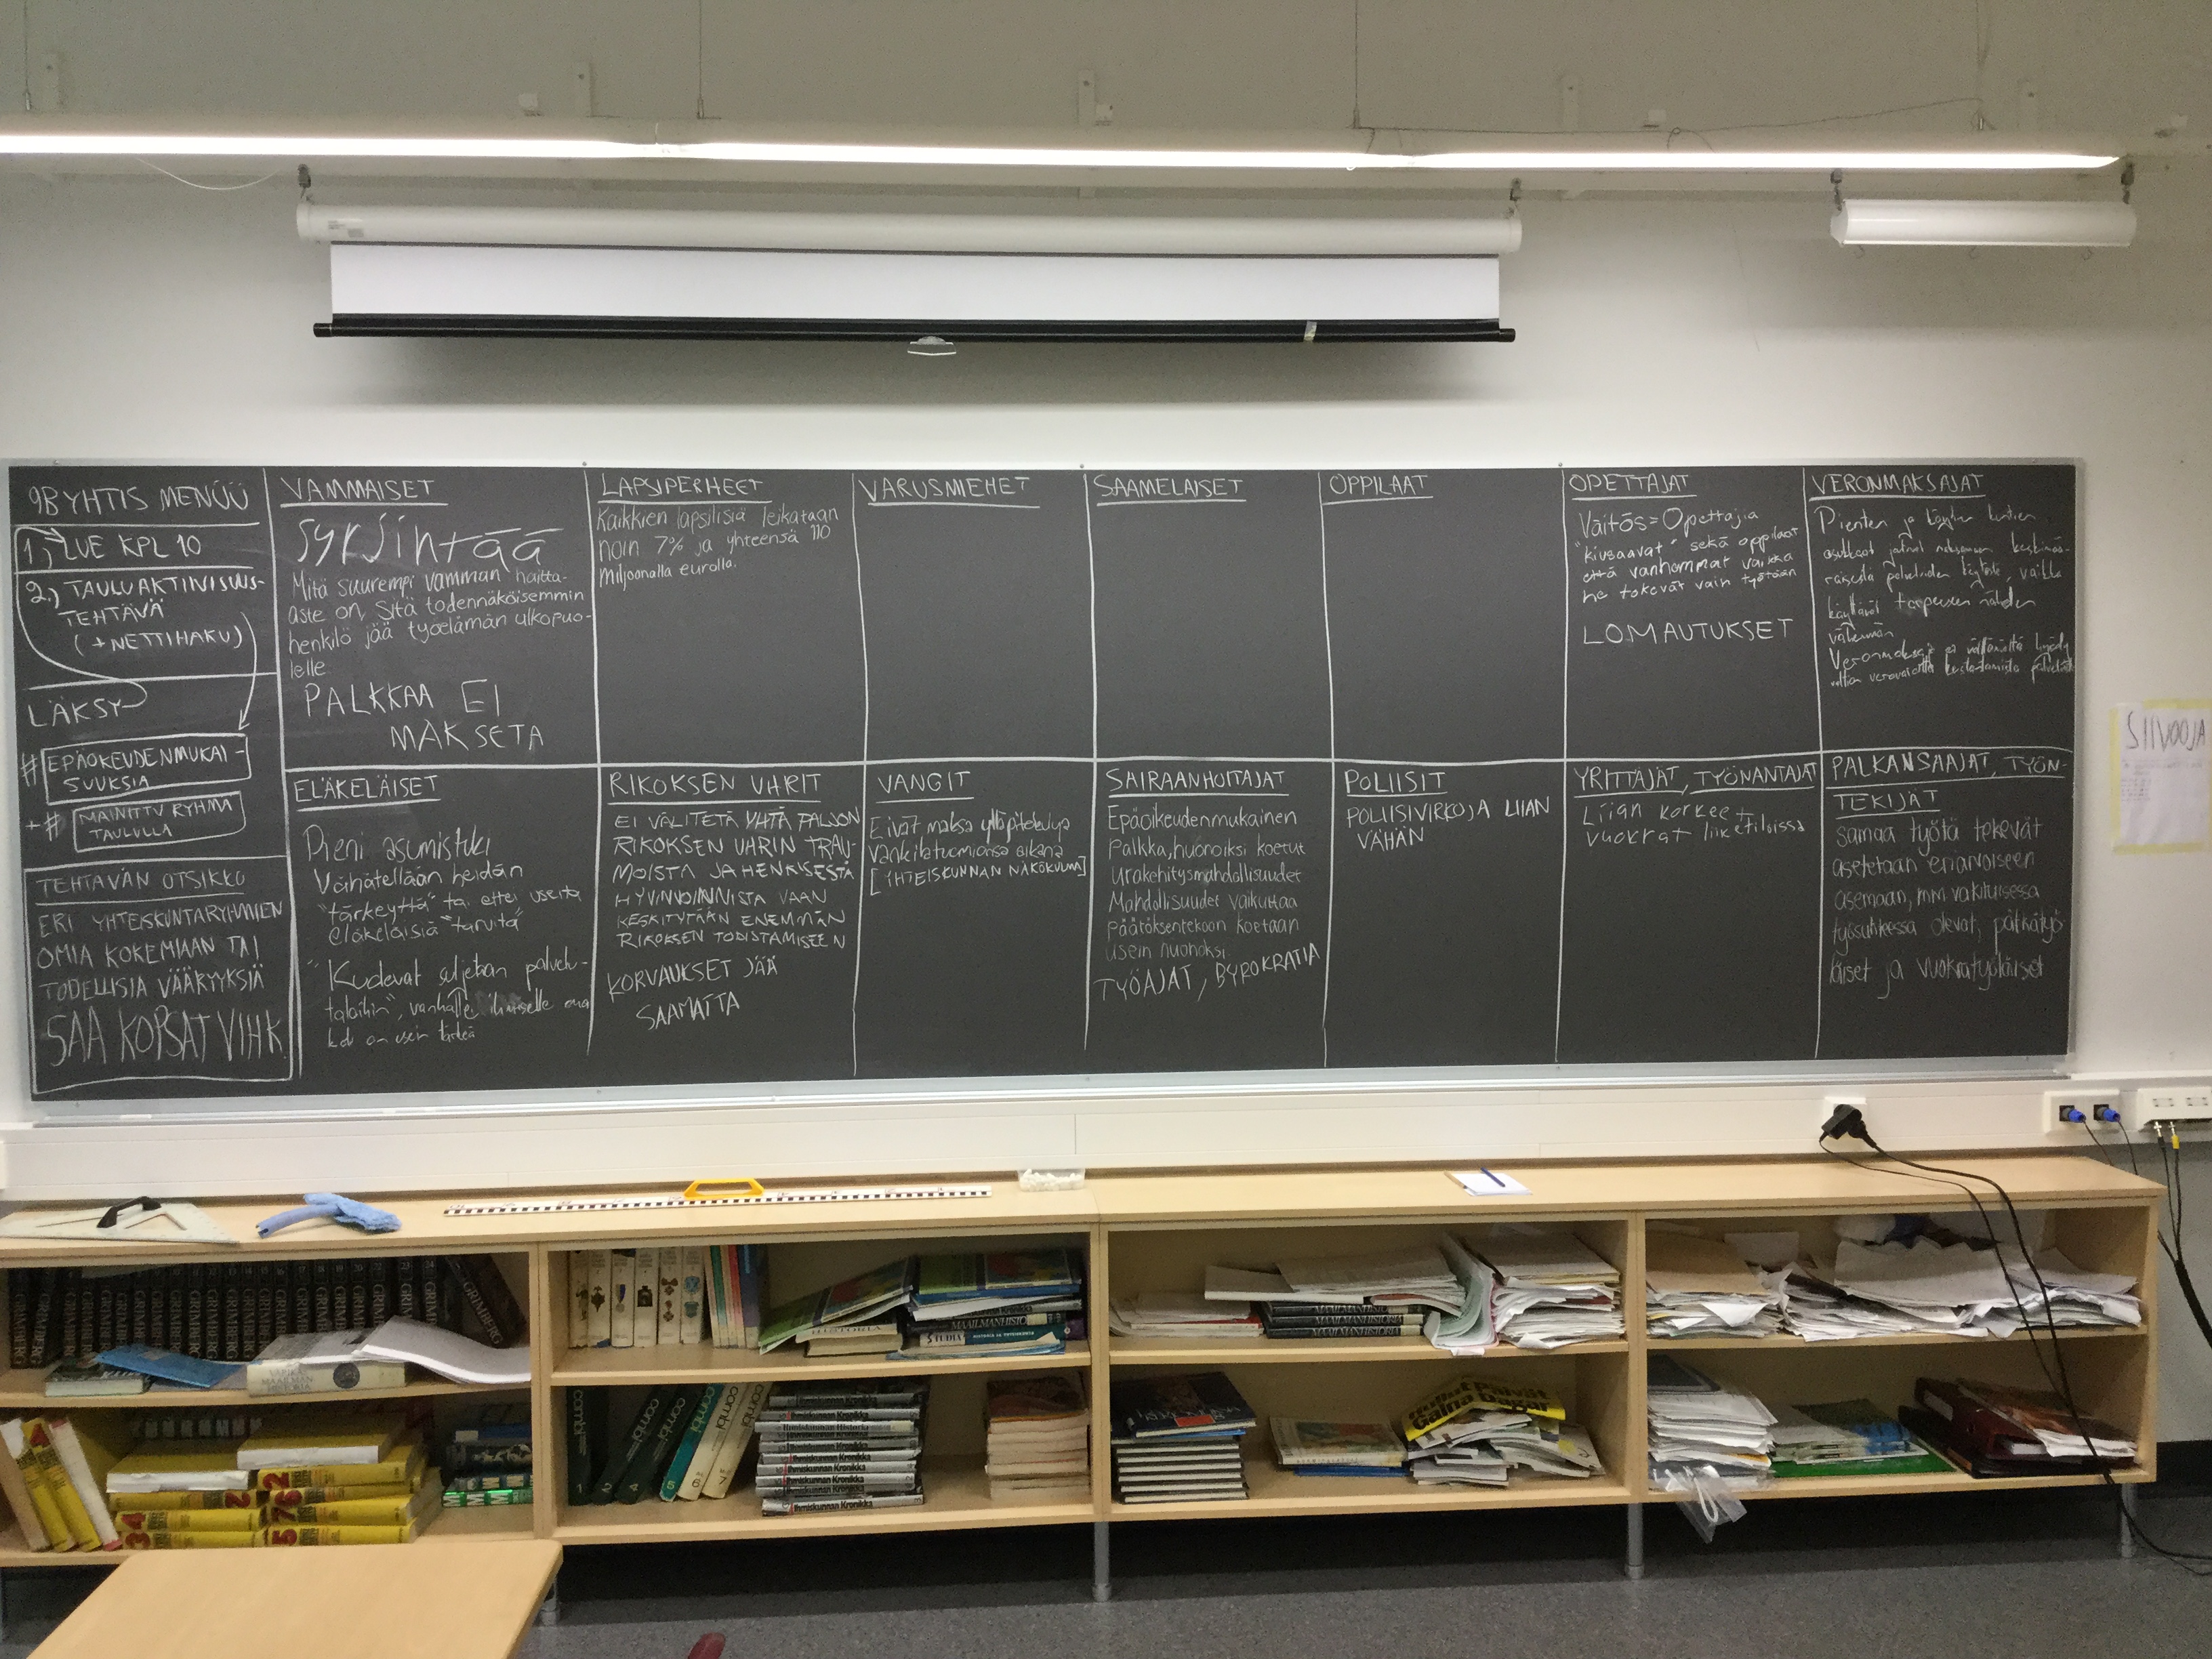 9B YHTIS MENÜÜ
1.) LUE KPL 10
2.) TAULUAKTIIVISUUS-
TEHTÄVÄ
(+NETTIHAKU)
LÄKSY
# EPÄOIKEUDENMUKAI-
SUUKSIA
+ # MAINITTU RYHMÄ
TAULULLA
TEHTÄVÄN OTSIKKO
ERI YHTEISKUNTARYHMIEN
OMIA KOKEMIAAN TAI
TODELLISIA VÄÄRYYKSIÄ
SAA KOPSAT VIHK.
VAMMAISET
Syrjintää
Mitä suurempi vamman haitta-
aste on, sitä todennäköisemmin
henkilö jää työelämän ulkopuo-
lelle.
PALKKAA EI
MAKSETA
LAPSIPERHEET
Kaikkien lapsilisiä leikataan
noin 7% ja yhteensä 110
miljoonalla eurolla.
VARUSMIEHET
SAAMELAISET
OPPILAAT
OPETTAJAT
Väitös = Opettajia
"kiusaavat" sekä oppilaat
että vanhemmat vaikka
he tekevät vain työtään
LOMAUTUKSET
VERONMAKSAJAT
Pienten ja köyhien kuntien
asukkaat joutuvat maksamaan keskimää-
räisestä palveluiden käytöstä, vaikka
käyttävät tarpeeseen nähden
vähemmän
Veronmaksaja ei välttämättä hyödy
valtion verovaroilla kustantamista palveluista
ELÄKELÄISET
Pieni asumistuki
Vähätellään heidän
"tärkeyttä" tai ettei useita
eläkeläisiä "tarvita"
suljetaan palvelu-
taloihin", vanhalle ihmiselle oma
koti on usein tärkeä
RIKOKSEN UHRIT
EI VÄLITETÄ YHTÄ PALJON
RIKOKSEN UHRIN TRAU-
MOISTA JA HENKISESTÄ
HYVINVOINNISTA VAAN
KESKITYTÄÄN ENEMMÄN
RIKOKSEN TODISTAMISEEN
KORVAUKSET JÄÄ
SAAMATTA
VANGIT
Eivät maksa ylläpitokuluja
vankilatuomionsa aikana
[YHTEISKUNNAN NÄKÖKULMA]
SAIRAANHOITAJAT
Epäoikeudenmukainen
palkka, huonoiksi koetut
urakehitysmahdollisuudet
Mahdollisuudet vaikuttaa
päätöksentekoon koetaan
usein huonoksi
TYÖAJAT, BYROKRATIA
POLIISIT
POLIISIVIRKOJA LIIAN
VÄHÄN
YRITTÄJÄT, TYÖNANTAJAT
Liian korkeet
vuokrat liiketiloissa
PALKANSAAJAT, TYÖN-
TEKIJÄT
samaa työtä tekevät
asetetaan eriarvoiseen
asemaan, mm vakituisessa
työsuhteessa olevat, pätkätyö
läiset ja vuokratyöläiset
SIIVOOJA
GRIMBERG
MAAILMAN
HISTORIA
MAAILMANHISTORIA
STUDIA
combi
Ihmiskunnan Kronikka
Hullut Päivät
Galna Dagar